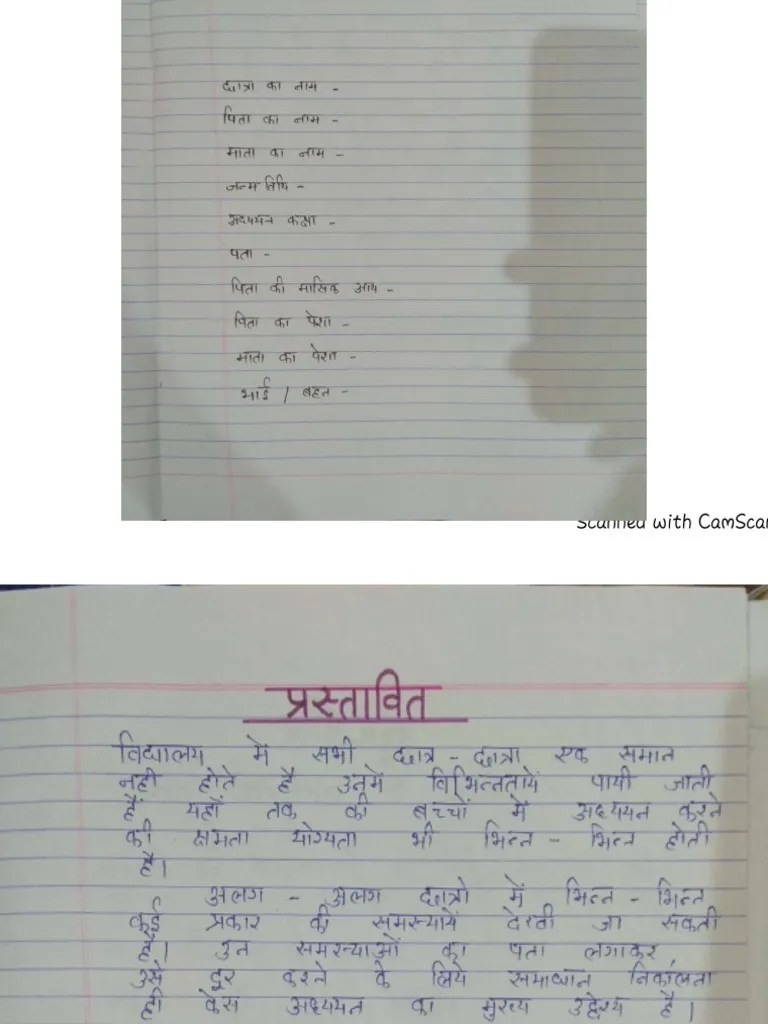 छात्रा का नाम -
पिता का नाम -
माता का नाम -
जन्म तिथि -
अध्ययन कक्षा -
पता -
पिता की मासिक आय -
पिता का पेशा -
माता का पेशा -
भाई / बहन -
Scanned with CamScan
प्रस्तावित
विद्यालय में सभी छात्र - छात्रा एक समान
नही होते है उनमें विभिन्नतायें पायी जाती
हैं यहाँ तक की बच्चों में अध्ययन करने
की क्षमता योग्यता भी भिन्न - भिन्न होती
है।
अलग - अलग छात्रो में भिन्न - भिन्न
कई प्रकार की समस्यायें देखी जा सकती
है। उन समस्याओं का पता लगाकर,
उसे दूर करने के लिये समाधान निकालना
ही केस अध्ययन का मुख्य उद्देश्य है।